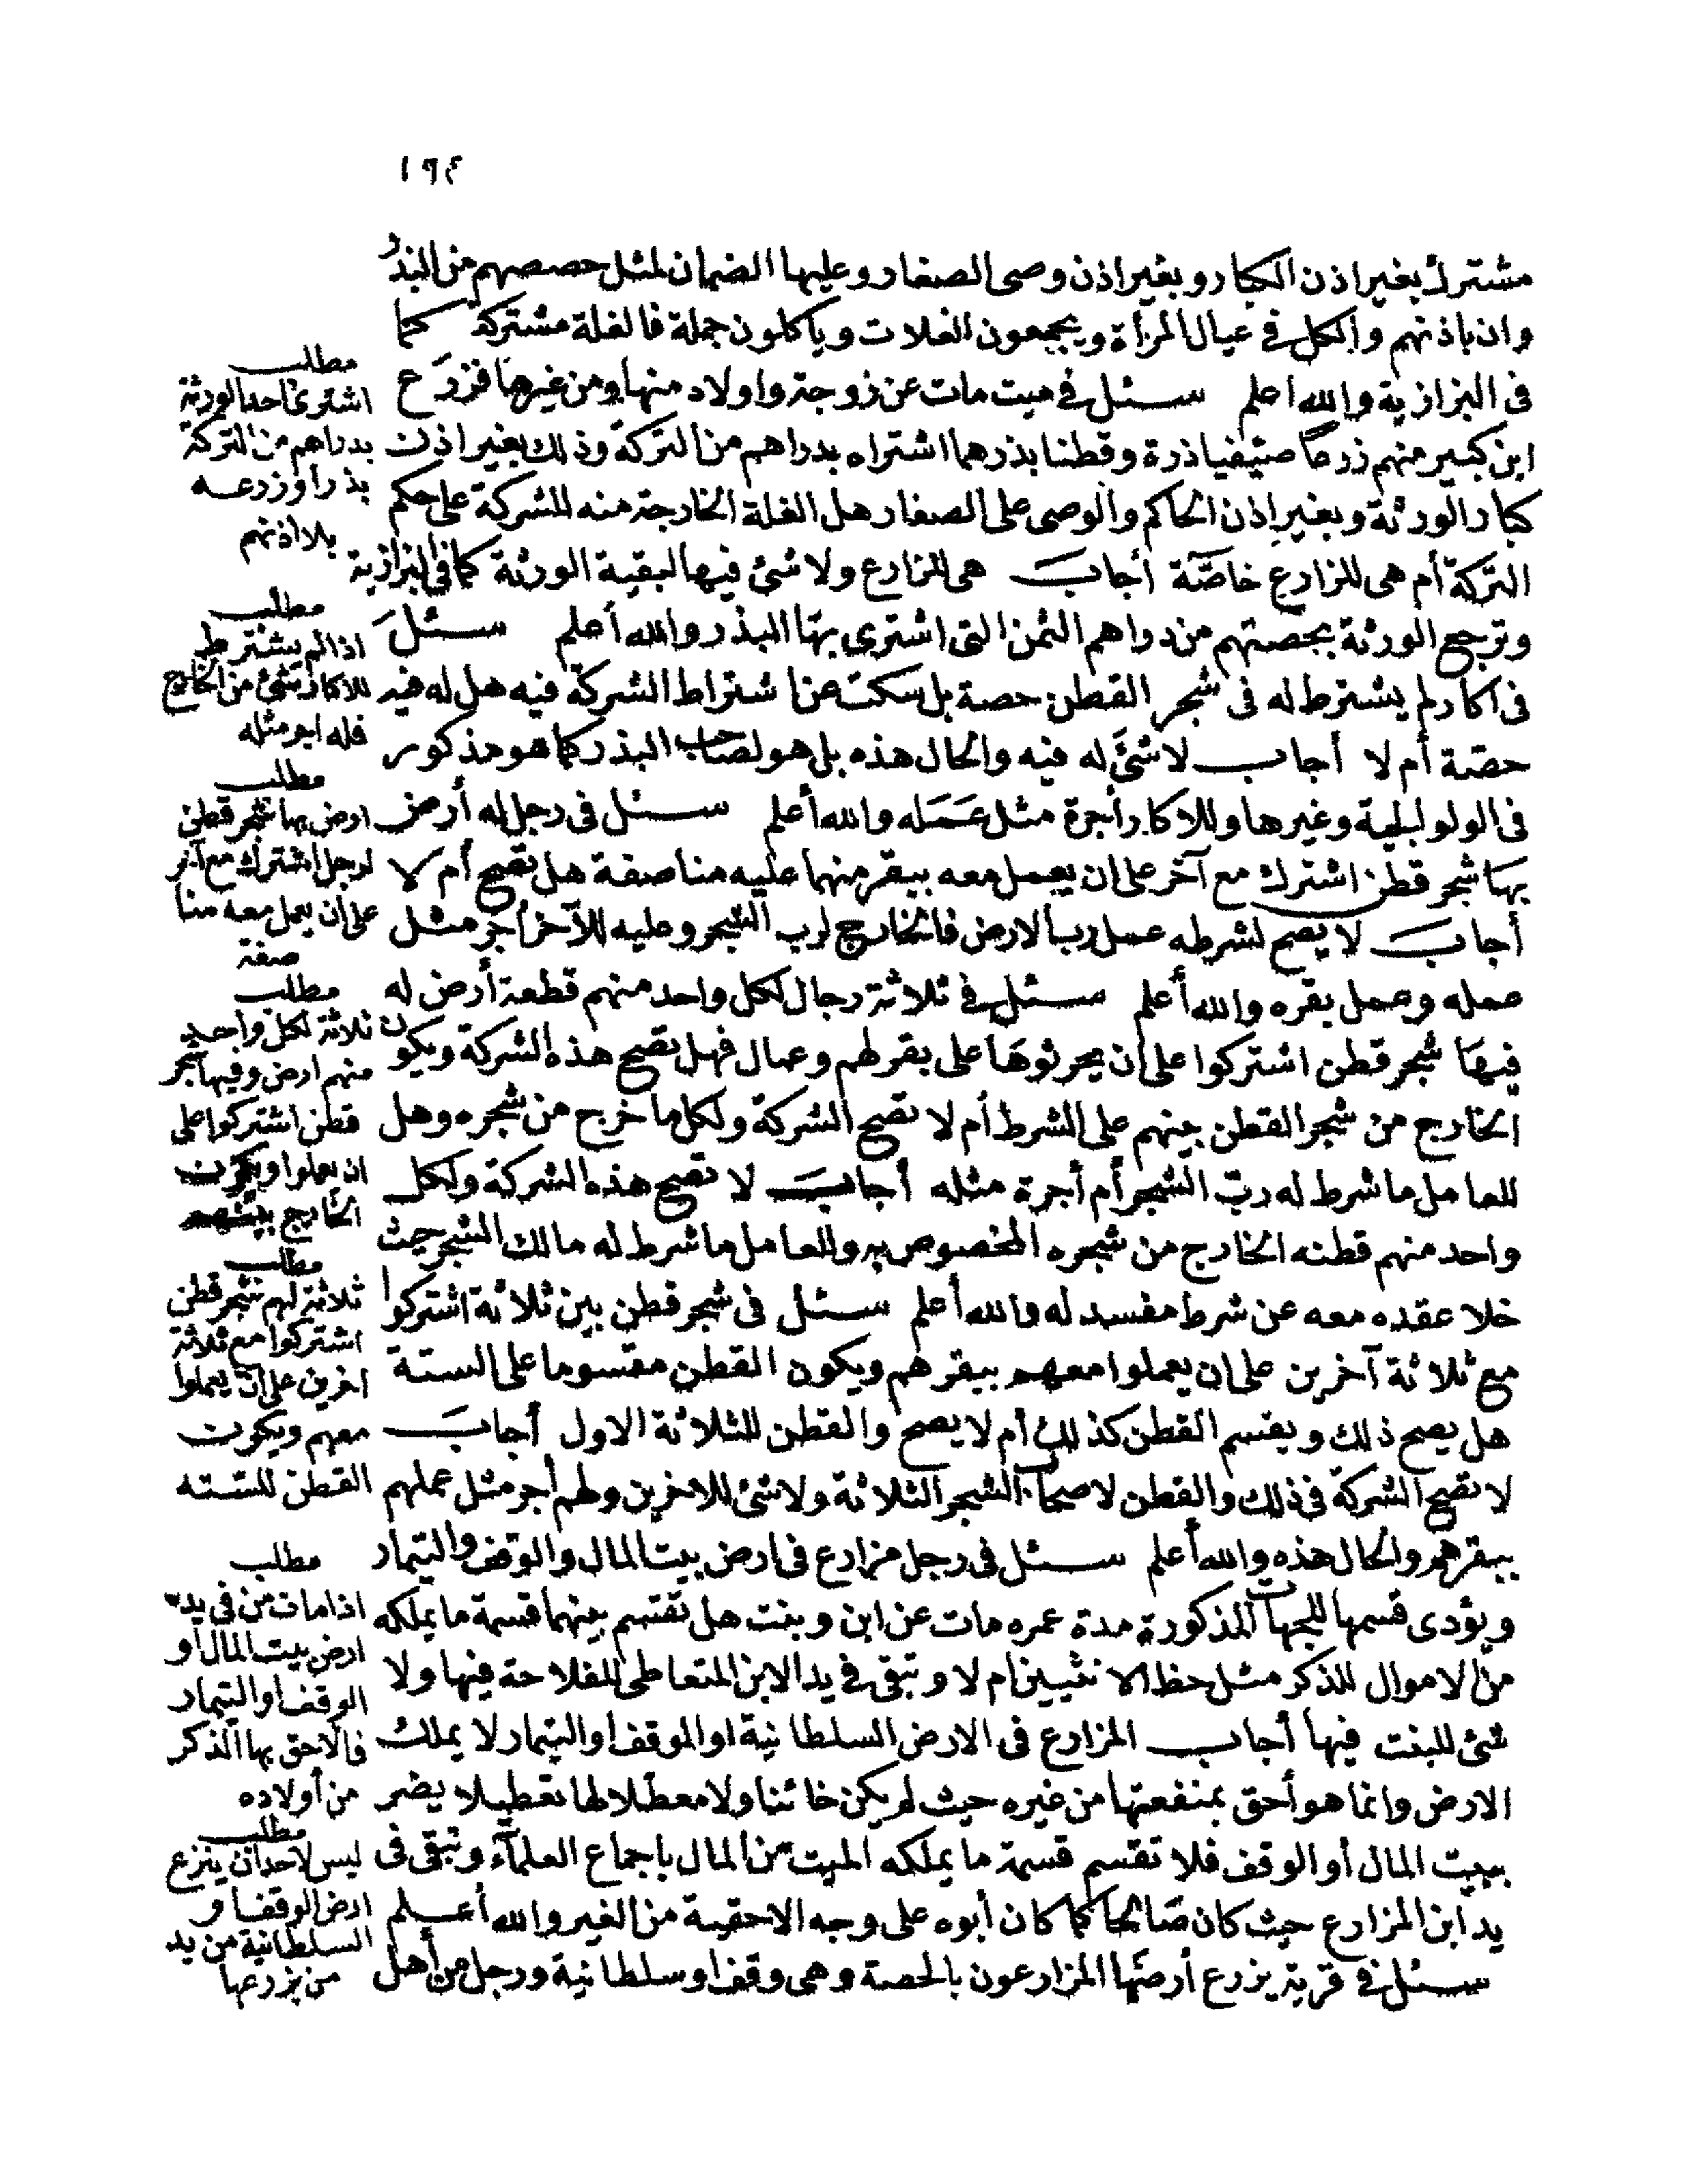 ١٩٤
مشترك بغير اذن الكبار وبغير اذن وصى الصغار وعليها الضمان لمثل حصصهم من البذر
وان باذنهم والكل فى عيال المرأة ويجمعون الغلات وياكلون جملة فالغلة مشتركة كما
فى البزازية والله اعلم سئل فى ميت مات عن زوجة واولاد منها ومن غيرها فزرع
ابن كبير منهم زرعا صيفيا ذرة وقطنا بذرهما اشتراه بدراهم من التركة وذلك بغير اذن
كبار الورثة وبغير إذن الحاكم والوصى على الصغار هل الغلة الخارجة منه للشركة على حكم
التركة أم هى للزارع خاصّة أجابَ هى للزارع ولا شئ فيها لبقية الورثة كما فى البزازية
وترجع الورثة بحصتهم من دراهم الثمن التى اشترى بها البذر والله أعلم سئلَ
فى اكار لم يشترط له فى شجر القطن حصة بل سكت عن اشتراط الشركة فيه هل له فيه
حصّة أم لا أجاب لا شئ له فيه والحال هذه بل هو لصاحب البذر كما هو مذكور
فى الولوالجية وغيرها وللاكار أجرة مثل عَمَله والله أعلم سئل فى رجل له أرض
بها شجر قطن اشترك مع آخر على ان يعمل معه ببقر منهما عليه مناصفة هل تصح أم لا
أجابَ لا يصح لشرطه عمل رب الارض فالخارج لرب الشجر وعليه للآخر أجر مثل
عمله وعمل بقره والله أعلم سئل فى ثلاثة رجال لكل واحد منهم قطعة أرض له
فيهَا شجر قطن اشتركوا على ان يحرثوهَا على بقر لهم وعمال فهل تصح هذه الشركة ويكون
الخارج من شجر القطن بينهم على الشرط أم لا تصح الشركة ولكل ما خرج من شجره وهل
للعامل ما شرط له ربّ الشجر أم أجرة مثله أجابَ لا تصح هذه الشركة ولكل
واحد منهم قطنه الخارج من شجره المخصوص به وللعامل ما شرط له مالك الشجر حيث
خلا عقده معه عن شرط مفسد له والله أعلم سئل فى شجر قطن بين ثلاثة اشتركوا
مع ثلاثة آخرين على ان يعملوا معهم ببقرهم ويكون القطن مقسوما على الستة
هل يصح ذلك ويقسم القطن كذلك أم لا يصح والقطن للثلاثة الاول أجابَ
لا تصح الشركة فى ذلك والقطن لاصحاب الشجر الثلاثة ولا شئ للاخرين ولهم أجر مثل عملهم
ببقرهم والحال هذه والله أعلم سئل فى رجل مزارع فى ارض بيت المال والوقف والتيمار
ويؤدى قسمها للجهات المذكورة مدة عمره مات عن ابن وبنت هل تقتسم بينهما قسمة ما يملكه
من الاموال للذكر مثل حظ الانثيين ام لا وتبقى فى يد الابن المتعاطى للفلاحة فيها ولا
شئ للبنت فيها أجاب المزارع فى الارض السلطانية او الموقف او التيمار لا يملك
الارض وانما هو أحق بمنفعتها من غيره حيث لم يكن خائنا ولا معطلا لها تعطيلا يضر
ببيت المال أو الوقف فلا تقسم قسمة ما يملكه الميت من المال باجماع العلمآء وتبقى فى
يد ابن المزارع حيث كان صَالحا كما كان أبوه على وجه الاحقية من الغير والله أعلم
سئل فى قرية يزرع أرضها المزارعون بالحصة وهى وقف او سلطانية ورجل من أهل
مطلب
اشترى احد الورثة
بدراهم من التركة
بذرا وزرعه
بلا اذنهم
مطلب
اذا لم يشترط
للاكار شئ من الخارج
فله اجر مثله
مطلب
ارض بها شجر قطن
لرجل اشترك مع آخر
على ان يعمل معه منا
صفة
مطلب
ثلاثة لكل واحد
منهم ارض وفيها شجر
قطن اشتركوا على
ان يعملوا ويكون
الخارج بينهم
مطلب
ثلاثة لهم شجر قطن
اشتركوا مع ثلاثة
اخرين على ان يعملوا
معهم ويكون
القطن للسته
مطلب
اذا مات من فى يده
ارض بيت المال او
الوقف او التيمار
فالاحق بها الذكر
من أولاده
مطلب
ليس لاحد ان ينزع
ارض الوقف او
السلطانية من يد
من يزرعها